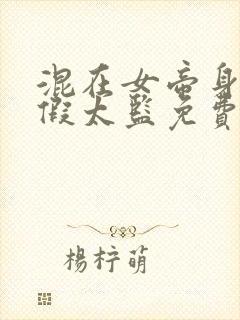 混在女帝身
假太監免費
楊梓萌